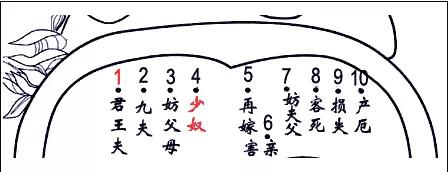 1 君王夫
2 九夫
3 妨父母
4 少奴
5 再嫁害
6 亲
7 妨夫父
8 客死
9 损失
10 产厄